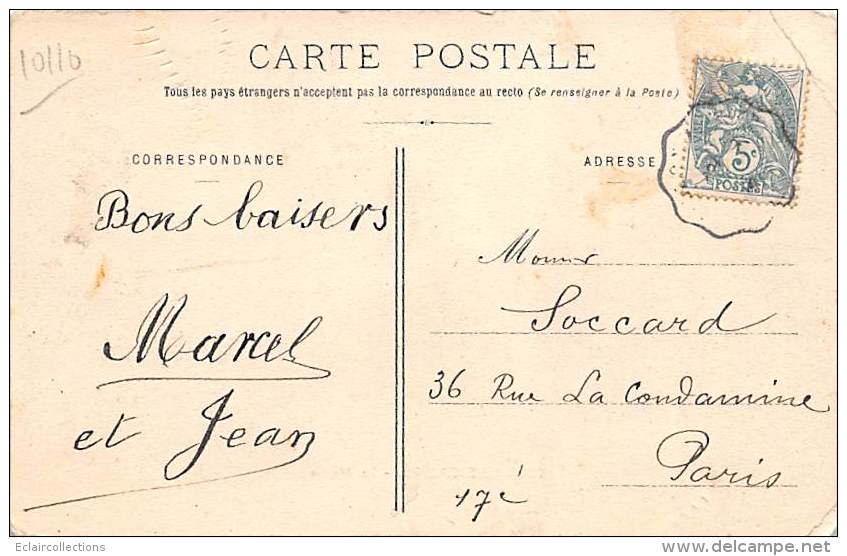 10110
CARTE POSTALE
Tous les pays étrangers n'acceptent pas la correspondance au recto (Se renseigner à la Poste)
CORRESPONDANCE
Bons baisers
Marcel
et Jean
ADRESSE
5c
POSTES
Soccard
36 Rue La Condamine
Paris
17é
Eclaircollections
www.delcampe.net